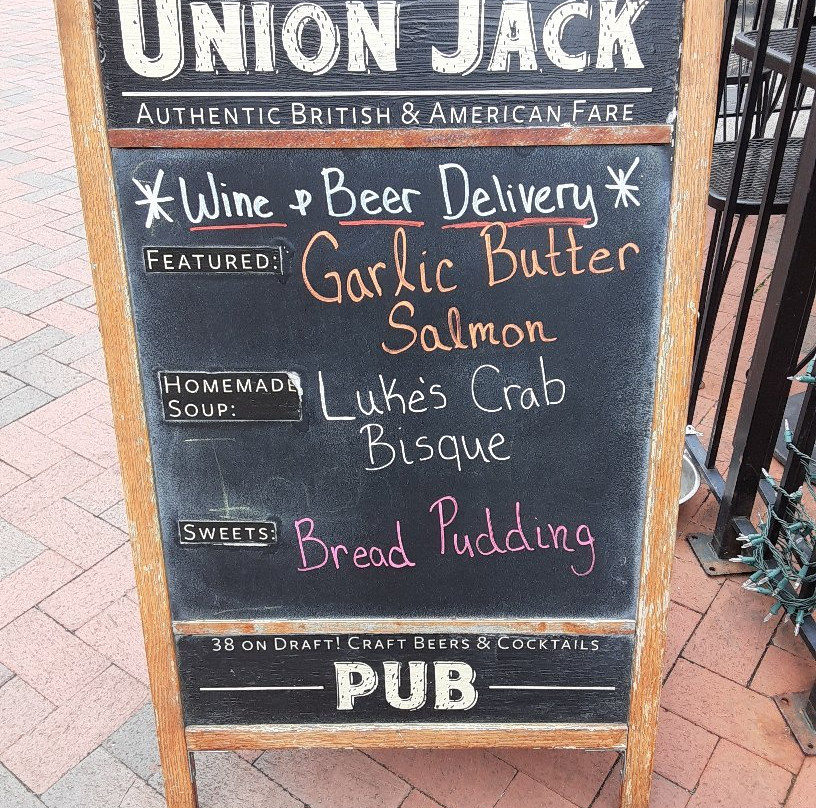 UNION JACK
AUTHENTIC BRITISH & AMERICAN FARE
*Wine & Beer Delivery*
FEATURED: Garlic Butter
Salmon
HOMEMADE Luke's Crab
SOUP: Bisque
SWEETS: Bread Pudding
38 ON DRAFT! CRAFT BEERS & COCKTAILS
PUB